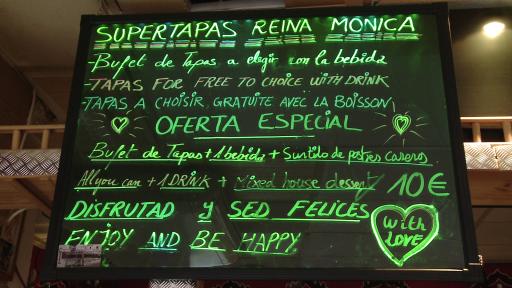 SUPERTAPAS REINA MONICA
-Bufet de Tapas a elegir con la bebida
-TAPAS FOR FREE TO CHOICE WITH DRINK
-TAPAS A CHOISIR, GRATUITE AVEC LA BOISSON
OFERTA ESPECIAL
Bufet de Tapas + 1 bebida + Surtido de postres caseros
All you can + 1 DRINK + Mixed house dessert 10€
DISFRUTAD y SED FELICES
ENJOY AND BE HAPPY
with LOVE